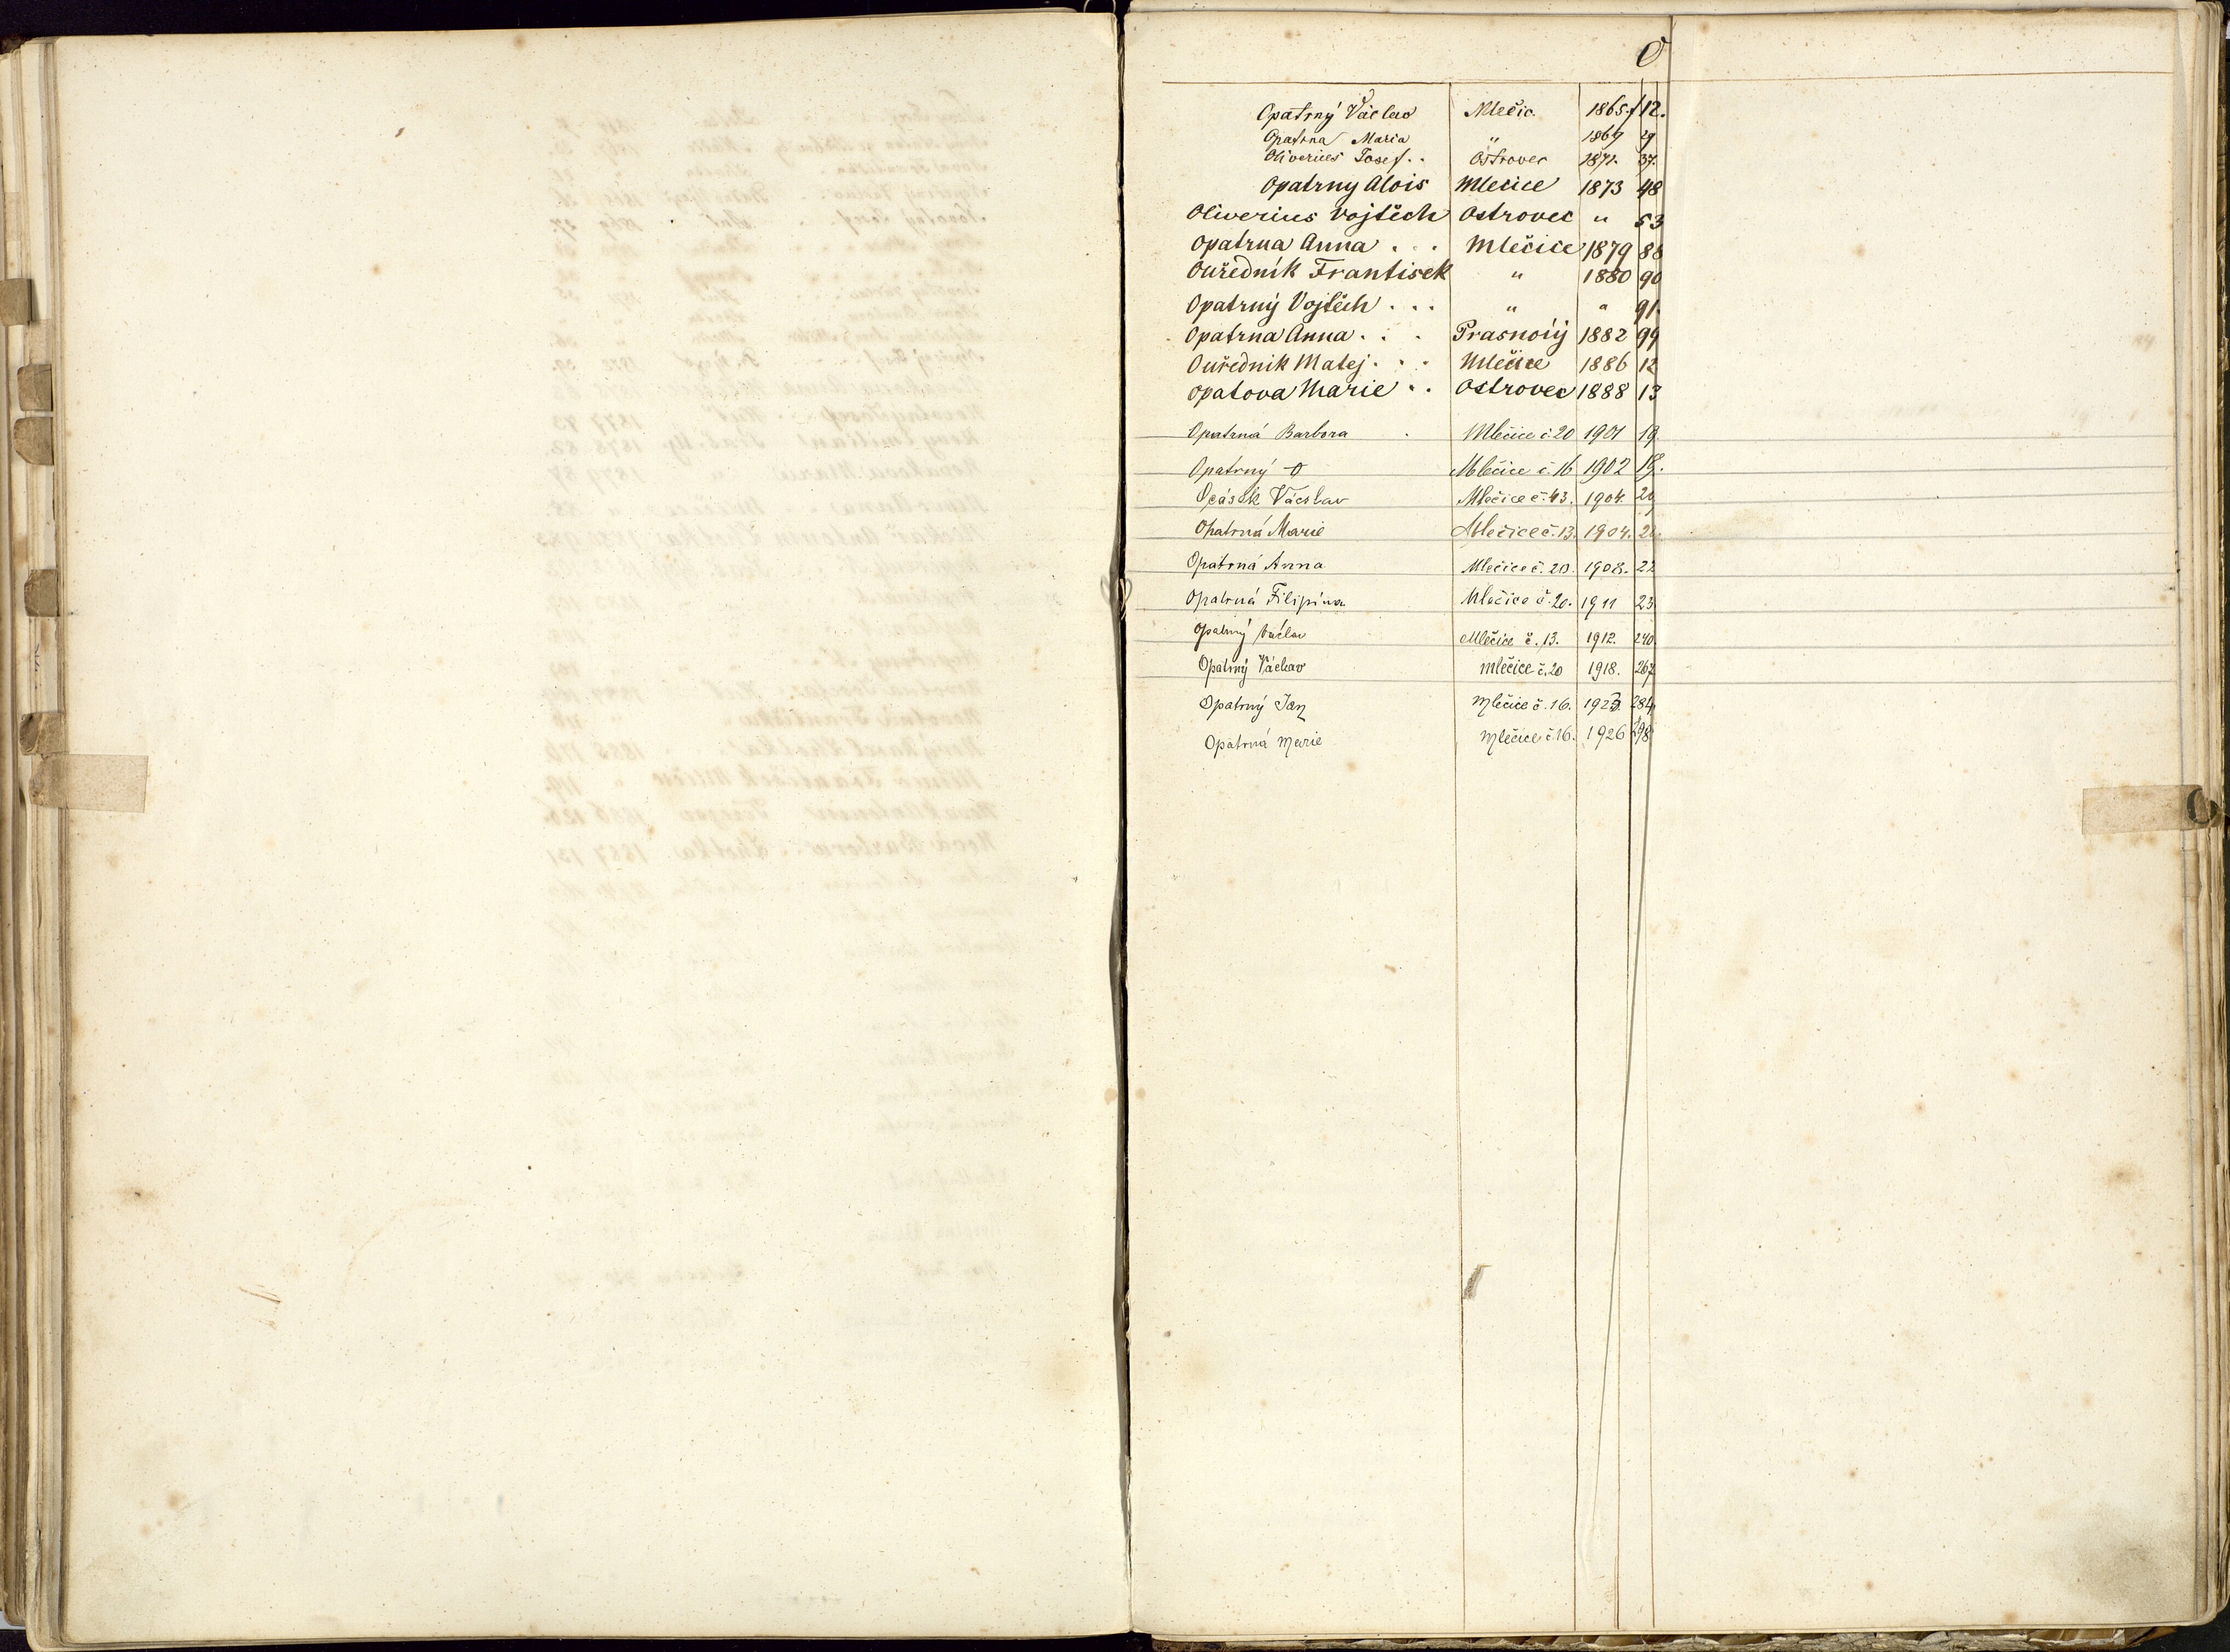 O
Opatrný Václav Mlečic. 1865. 12.
Opatrna Maria " 1869 29
Oliverius Josef . . Ostrovec 1871. 37.
Opatrny Alois Mlečice 1873 48
Oliverius Vojtěch Ostrovec " 53
Opatrna Anna . . . Mlečice 1879 88
Ouředník Frantisek " 1880 90
Opatrný Vojtěch . . . " " 91.
Opatrna Anna . . . 1882 99
Ouřednik Matej . . . Mlečice 1886 12
Opatova Marie . . Ostrovec 1888 13
Opatrná Barbora Mlečice č. 20 1901 19.
Opatrný O Mlečice č. 16 1902 19.
Ocásek Václav Mlečice č. 43. 1904. 20
Opatrná Marie Mlečice č. 13. 1904. 20.
Opatrná Anna Mlečice č. 20. 1908. 22
Opatrná Filipina Mlečice č. 20. 1911 23
Opatrný Václav Mlečice č. 13. 1912. 240
Opatrný Václav Mlečice č. 20 1918. 267
Opatrný Jan Mlečice č. 16. 1923. 284
Opatrná Marie Mlečice č. 16. 1926 298
O